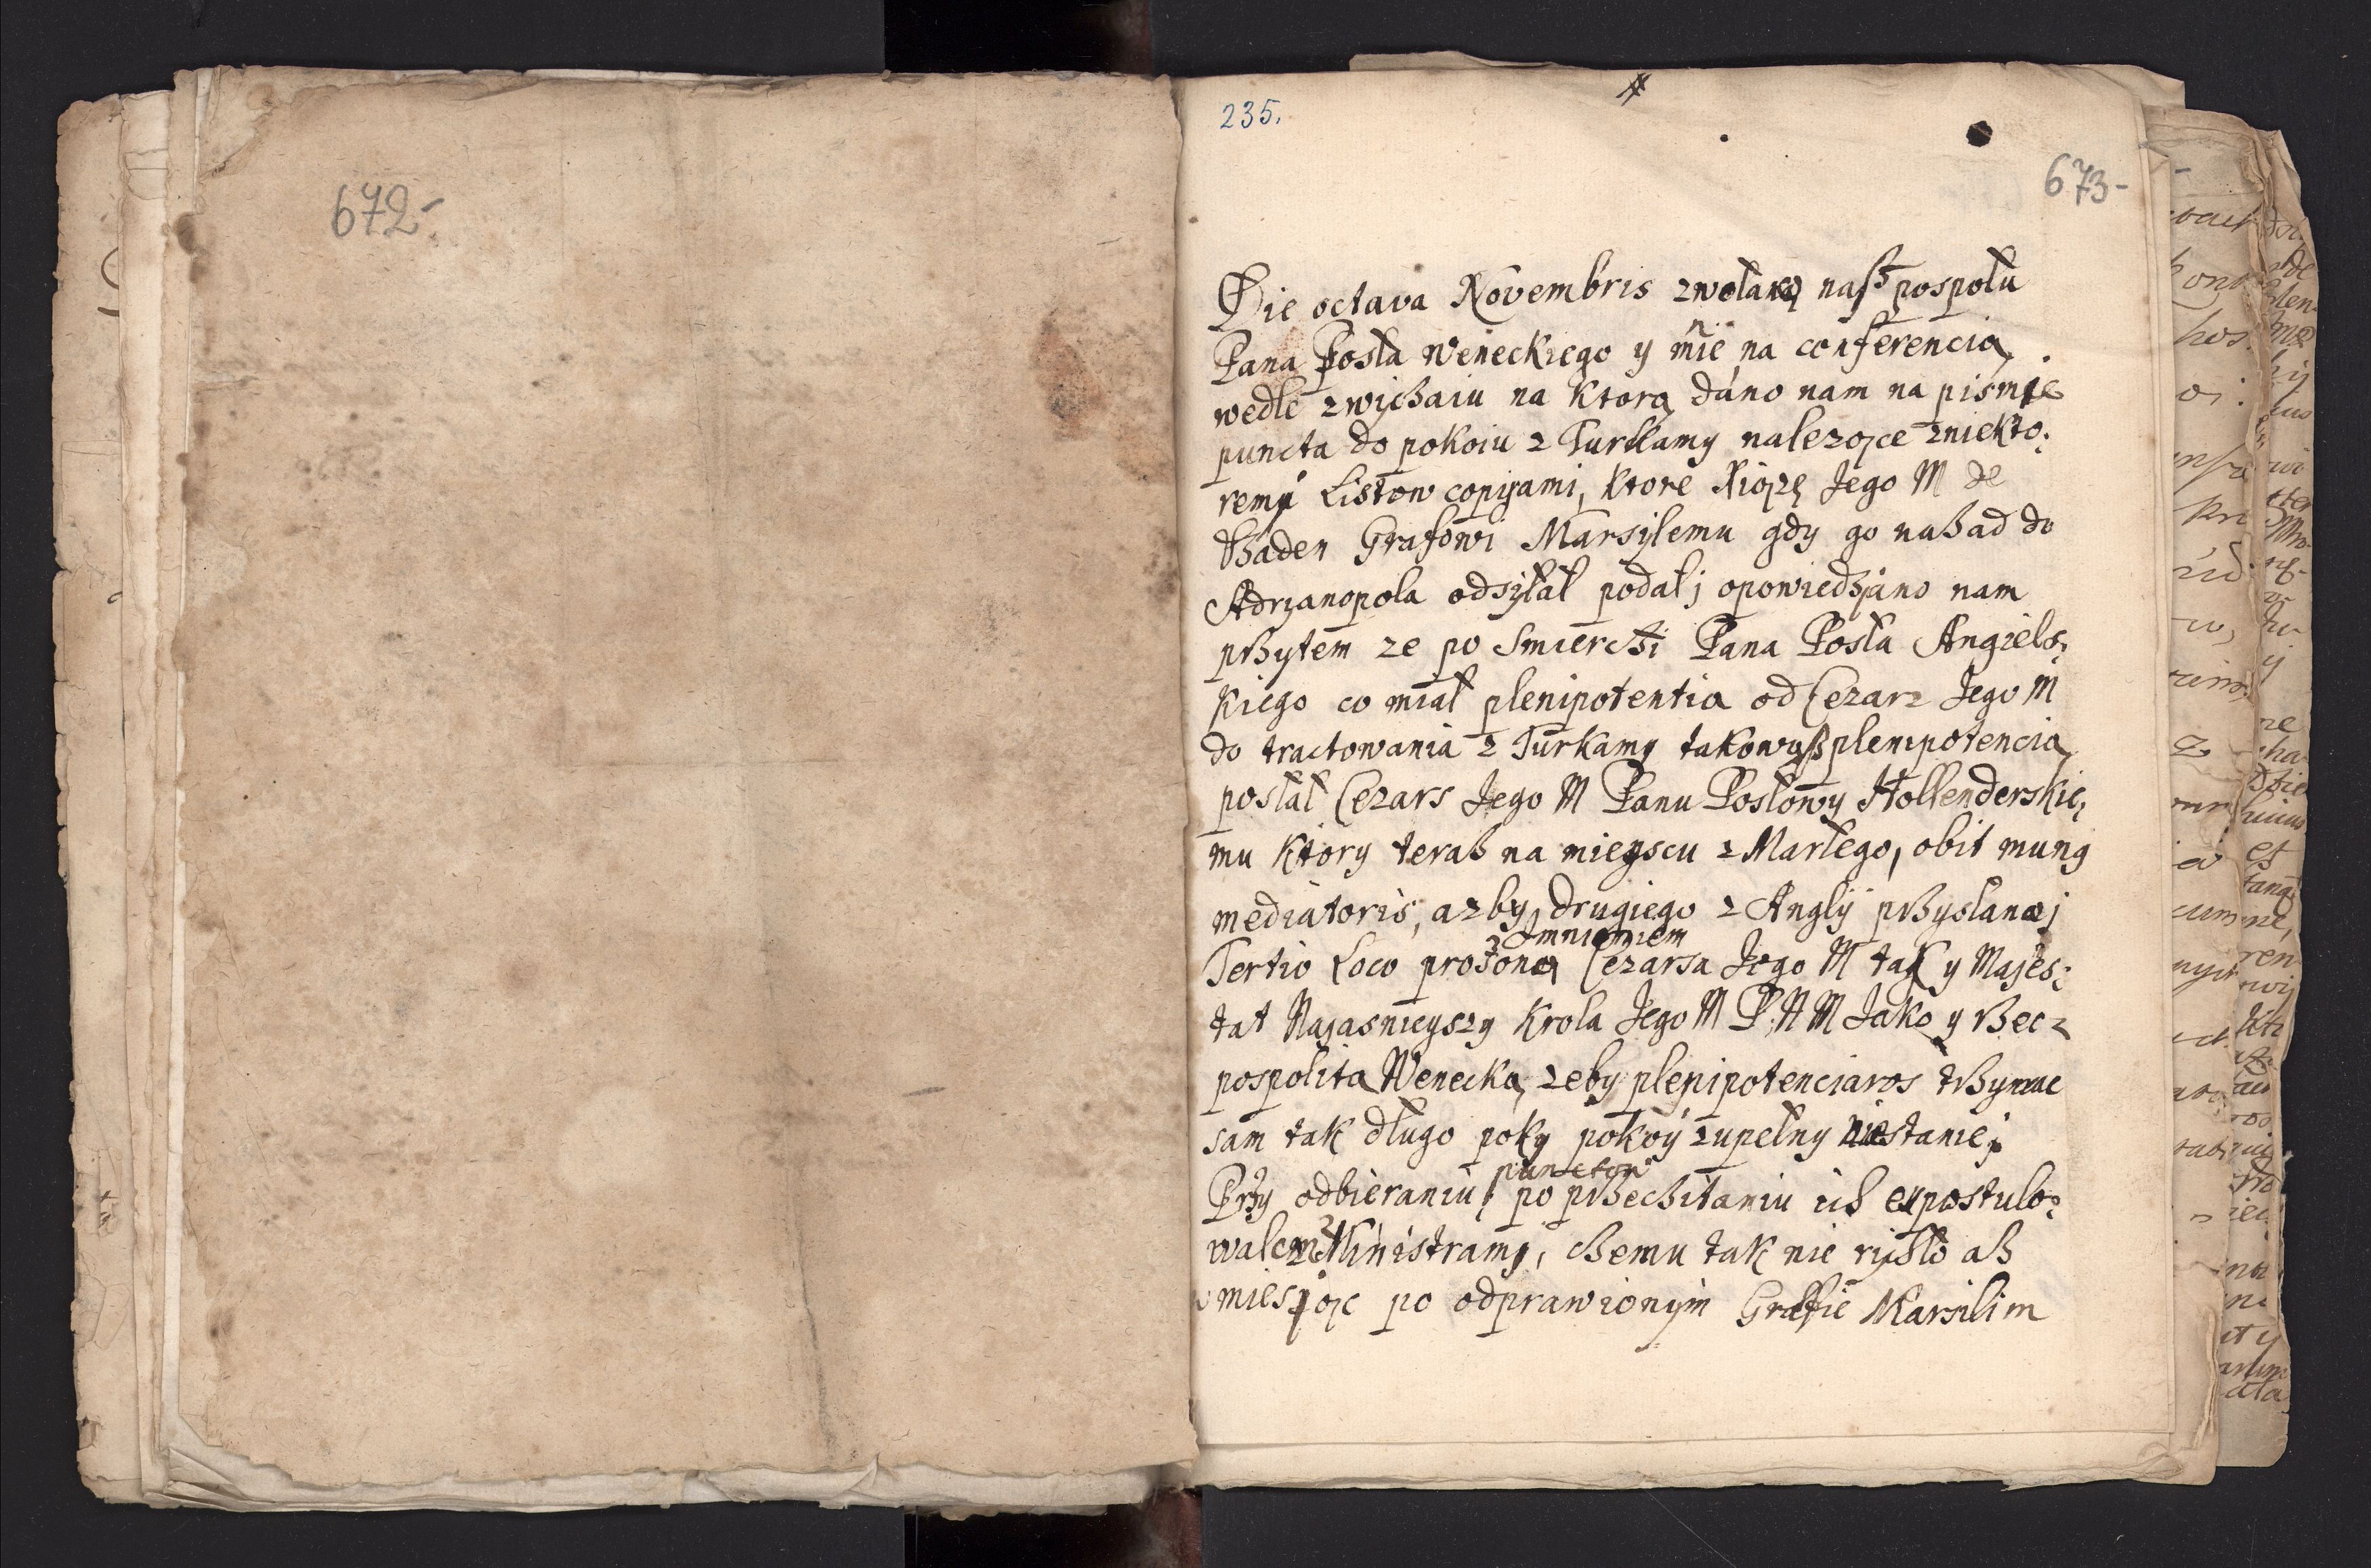 672-
235.
673-
Die octava Novembris zwołano naß pospołu
Pana Posła weneckiego y mnie na conferencią
wedle zwißaiu na ktorą dano nam na pismie
puncta do pokoiu z Turkamy nalezojce zniekto:
remy Listow copijami, ktore Xiozę Jego M de
Baden Grafowi Marsylemu gdy go naßad do
Adrzanopola odsyłał podał; opowiedßiano nam
prßytem ze po Smiercßi Pana Posła Angiels:
kiego co miał plenipotentia od Cezarz Jego M
do tractowania z Turkamy takowąß plenipotencią
posłał Cezars Jego M Panu Posłowy Hollenderskie:
mu ktory teraß na mieyscu zMarłego, obit mung
mediatoris, azby drugiego z Anglij prßysłano;
zdmniemiem
Tertio Loco prośono Cezarsa Jego M tak y Majes:
tat Najasnieyszy Krola Jego M P. N M Jako y Rßecz
pospolita Wenecka, zeby plenipotenciaros trßymac
sam tak długo poky pokoy zupełny niestanie;
punctow
Przy odbieraniu, po prßecßitaniu iß expostulo:
walem z Ministramy, cßemu tak nie ryßło aß
w miesiojc po odprawionym Grafie Marsilim